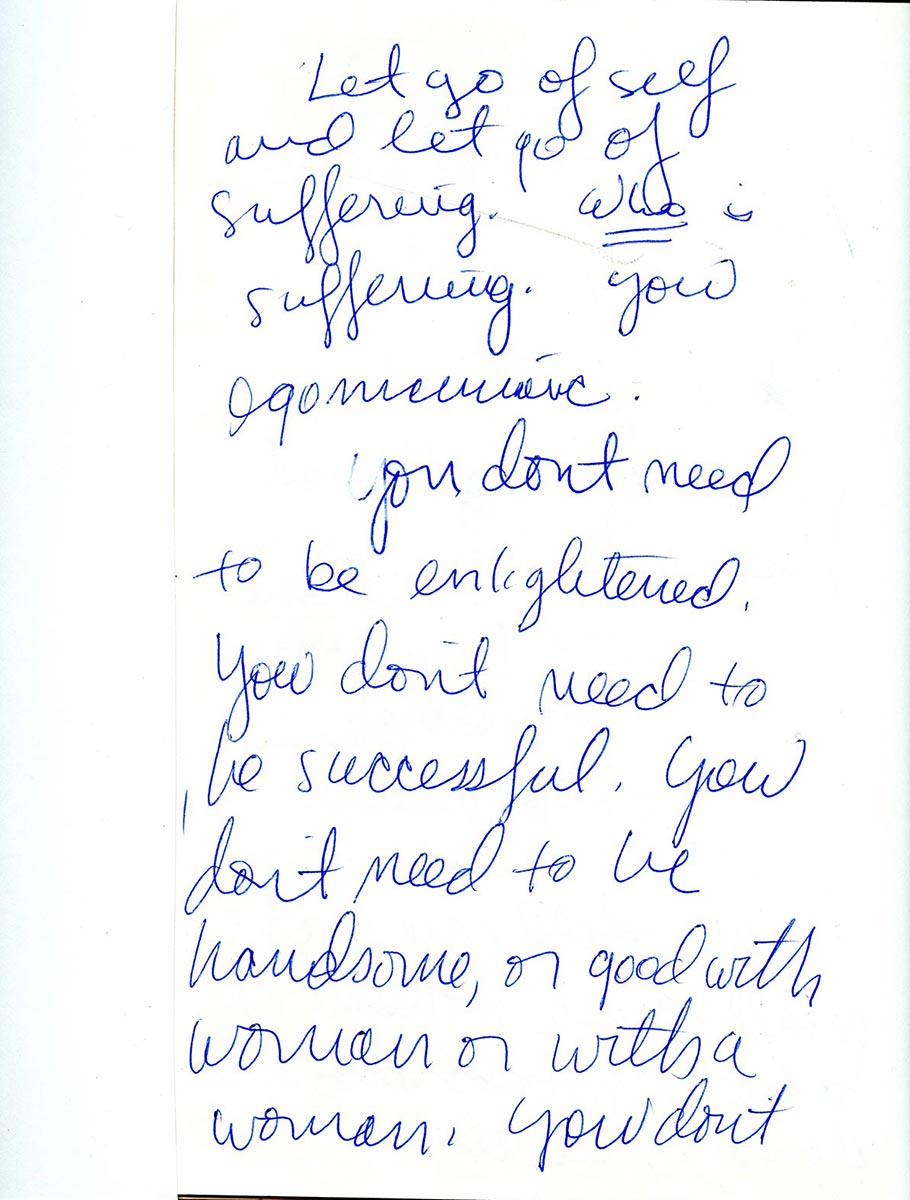 Let go of self
and let go of
suffering. Who is
suffering. You
egomaniac.
You dont need
to be enlightened.
You don't need to
be successful. You
don't need to be
handsome, or good with
woman or with a
woman. You dont